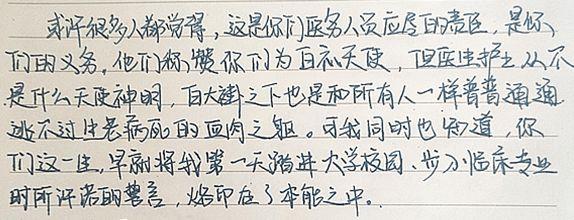 或许很多人都觉得，这是你们医务人员应尽的责任，是你
们的义务。他们称赞你们为白衣天使，但医生护士从不
是什么天使神明，白大褂之下也是和所有人一样普普通通
逃不过生老病死的血肉之躯。可我同时也知道，你
们这一生，早就将我第一天踏进大学校园、步入临床专业
时所许诺的誓言，烙印在了本能之中。